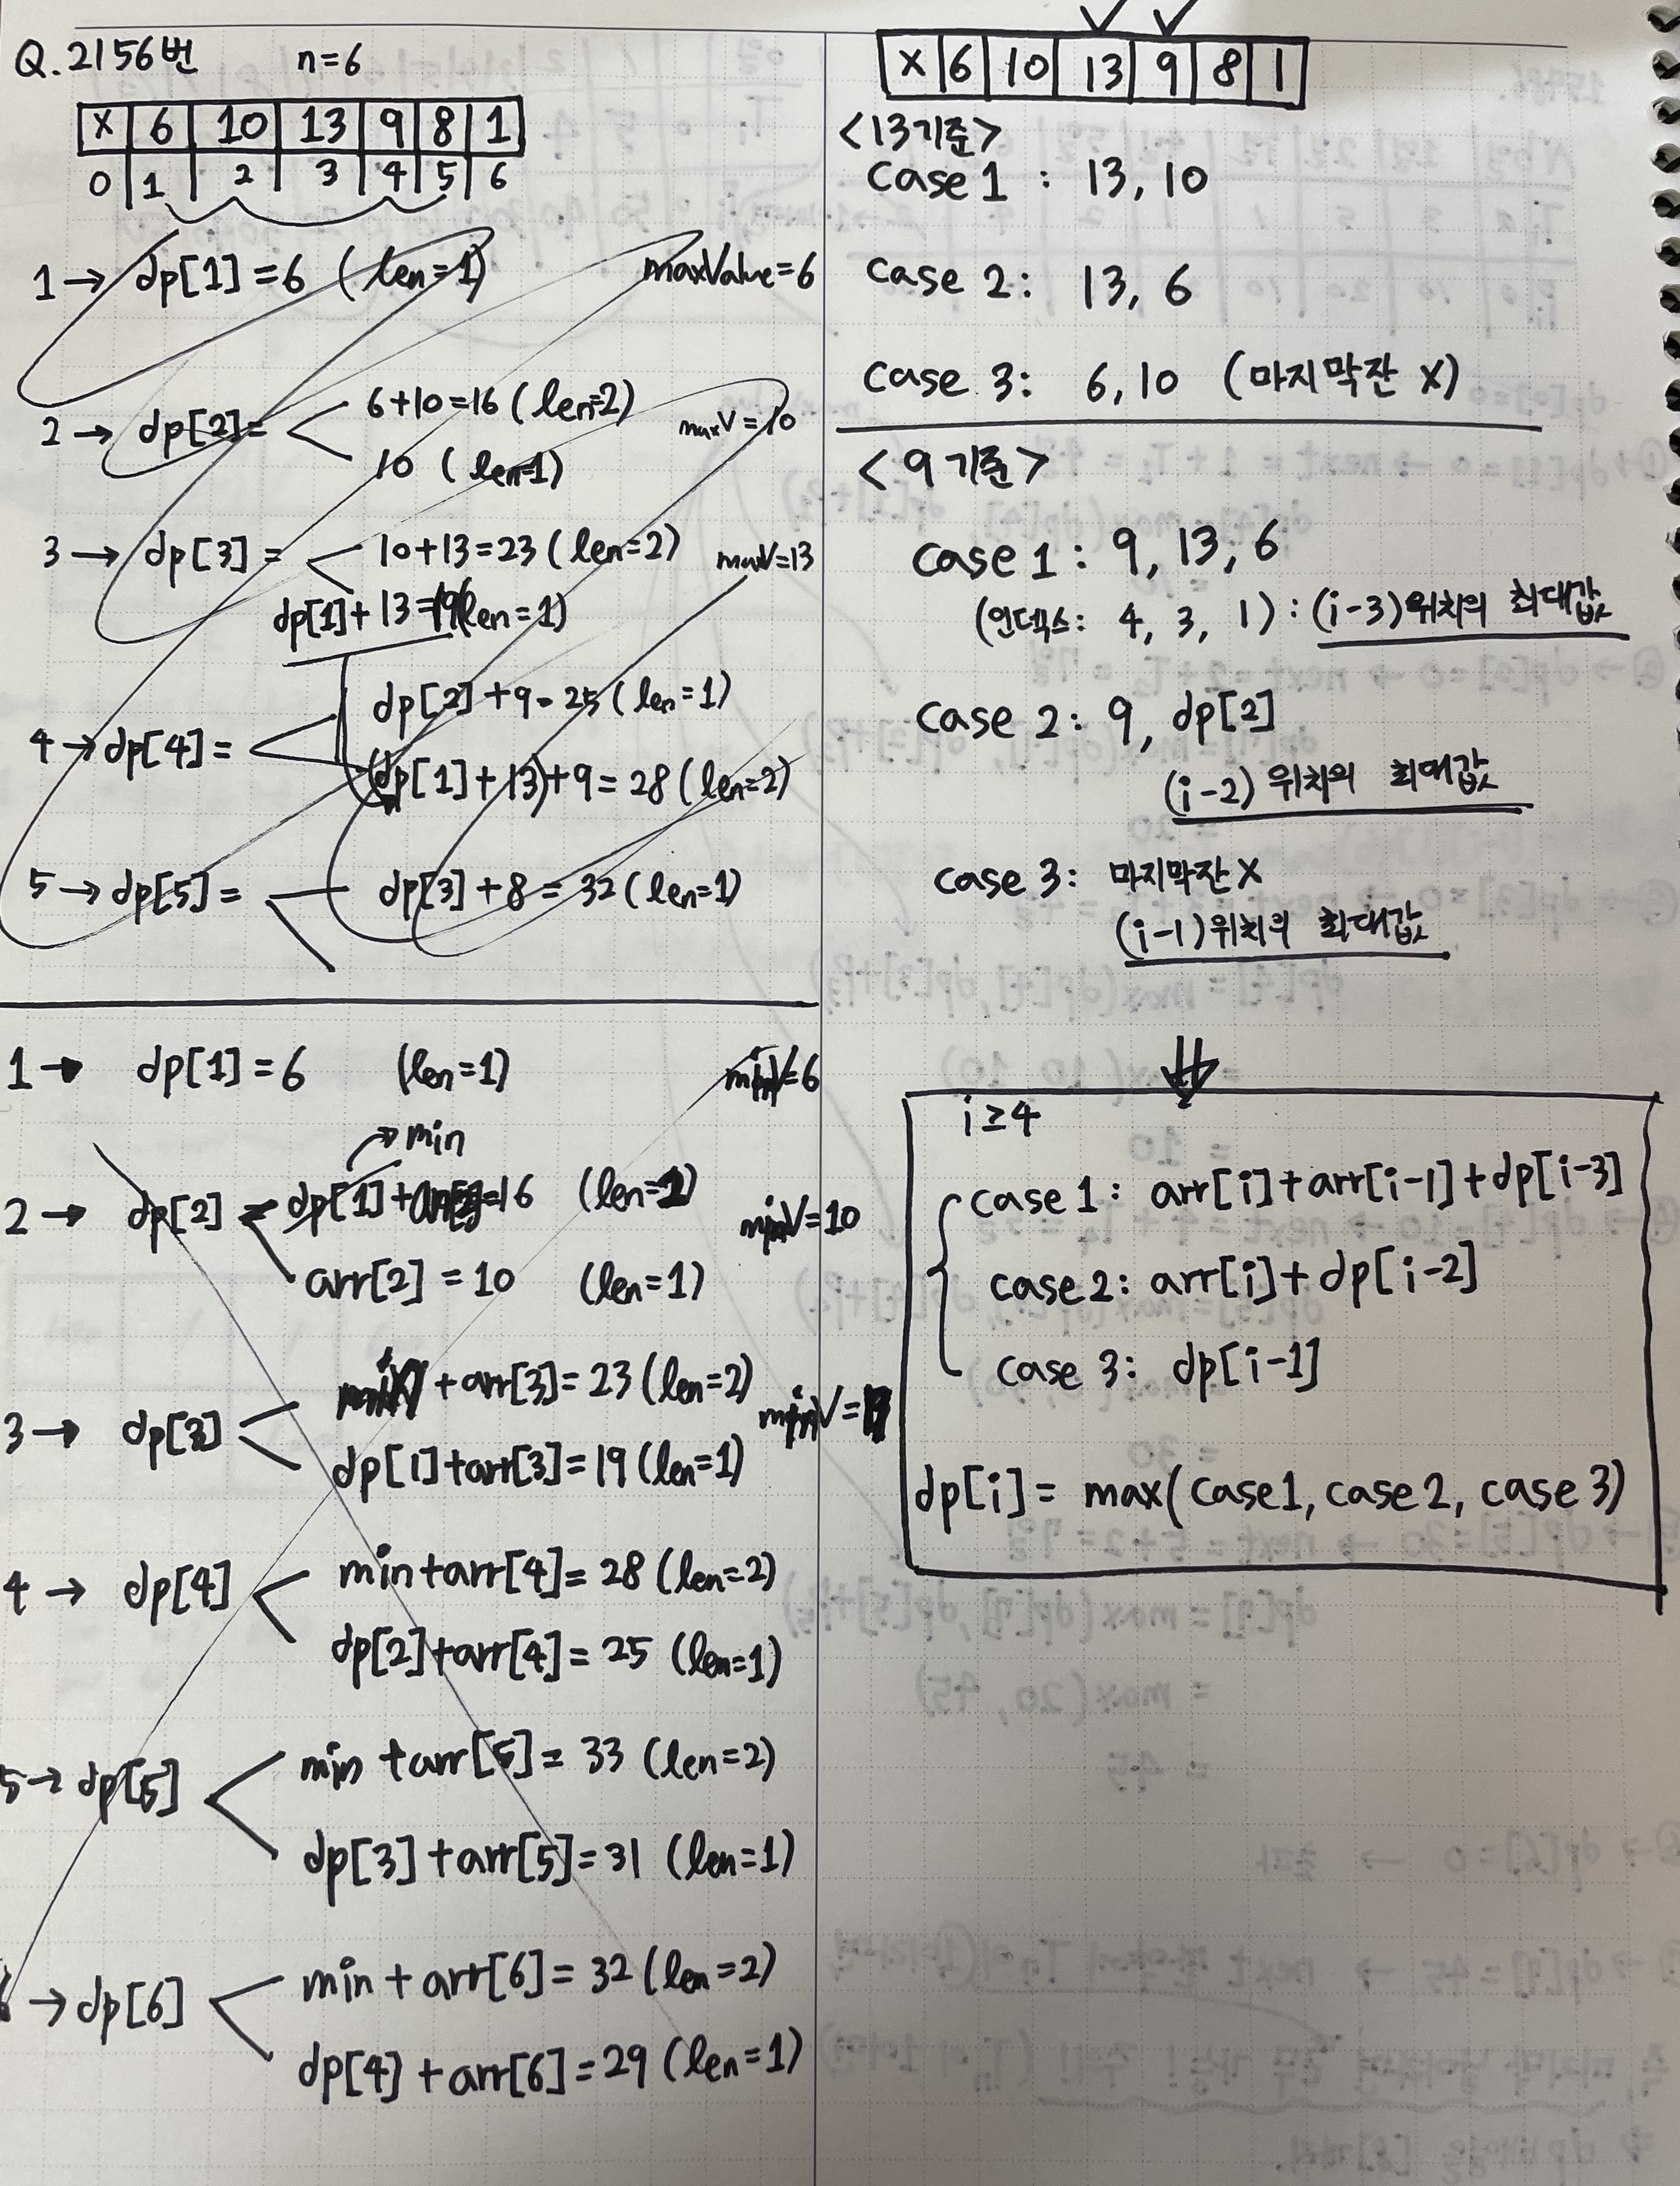 Q. 2156번 n=6
X 6 10 13 9 8 1
0 1 2 3 4 5 6
1 → dp[1] = 6 (len=1) maxValue=6
2 → dp[2] =
6+10=16 (len=2) maxV=10
10 (len=1)
3 → dp[3] =
10+13=23 (len=2) maxV=13
dp[1]+13=19 (len=1)
4 → dp[4] =
dp[2]+9=25 (len=1)
(dp[1]+13)+9=28 (len=2)
5 → dp[5] =
dp[3]+8=32 (len=1)
1 → dp[1]=6 (len=1) minV=6
min
2 → dp[2] = dp[1]+arr[2]=16 (len=2) minV=10
arr[2]=10 (len=1)
3 → dp[3]
min+arr[3]=23 (len=2) minV=
dp[1]+arr[3]=19 (len=1)
4 → dp[4]
min+arr[4]=28 (len=2)
dp[2]+arr[4]=25 (len=1)
5 → dp[5]
min+arr[5]=33 (len=2)
dp[3]+arr[5]=31 (len=1)
→ dp[6]
min+arr[6]=32 (len=2)
dp[4]+arr[6]=29 (len=1)
X 6 10 13 9 8 1
<13기준>
Case 1 : 13, 10
Case 2: 13, 6
Case 3: 6, 10 (마지막잔 X)
<9기준>
Case 1 : 9, 13, 6
(인덱스: 4, 3, 1) : (i-3)위치의 최대값
Case 2: 9, dp[2]
(i-2) 위치의 최대값
Case 3: 마지막잔 X
(i-1)위치의 최대값
i≥4
Case 1 : arr[i]+arr[i-1]+dp[i-3]
Case 2: arr[i]+dp[i-2]
Case 3: dp[i-1]
dp[i] = max(Case1, Case2, Case3)